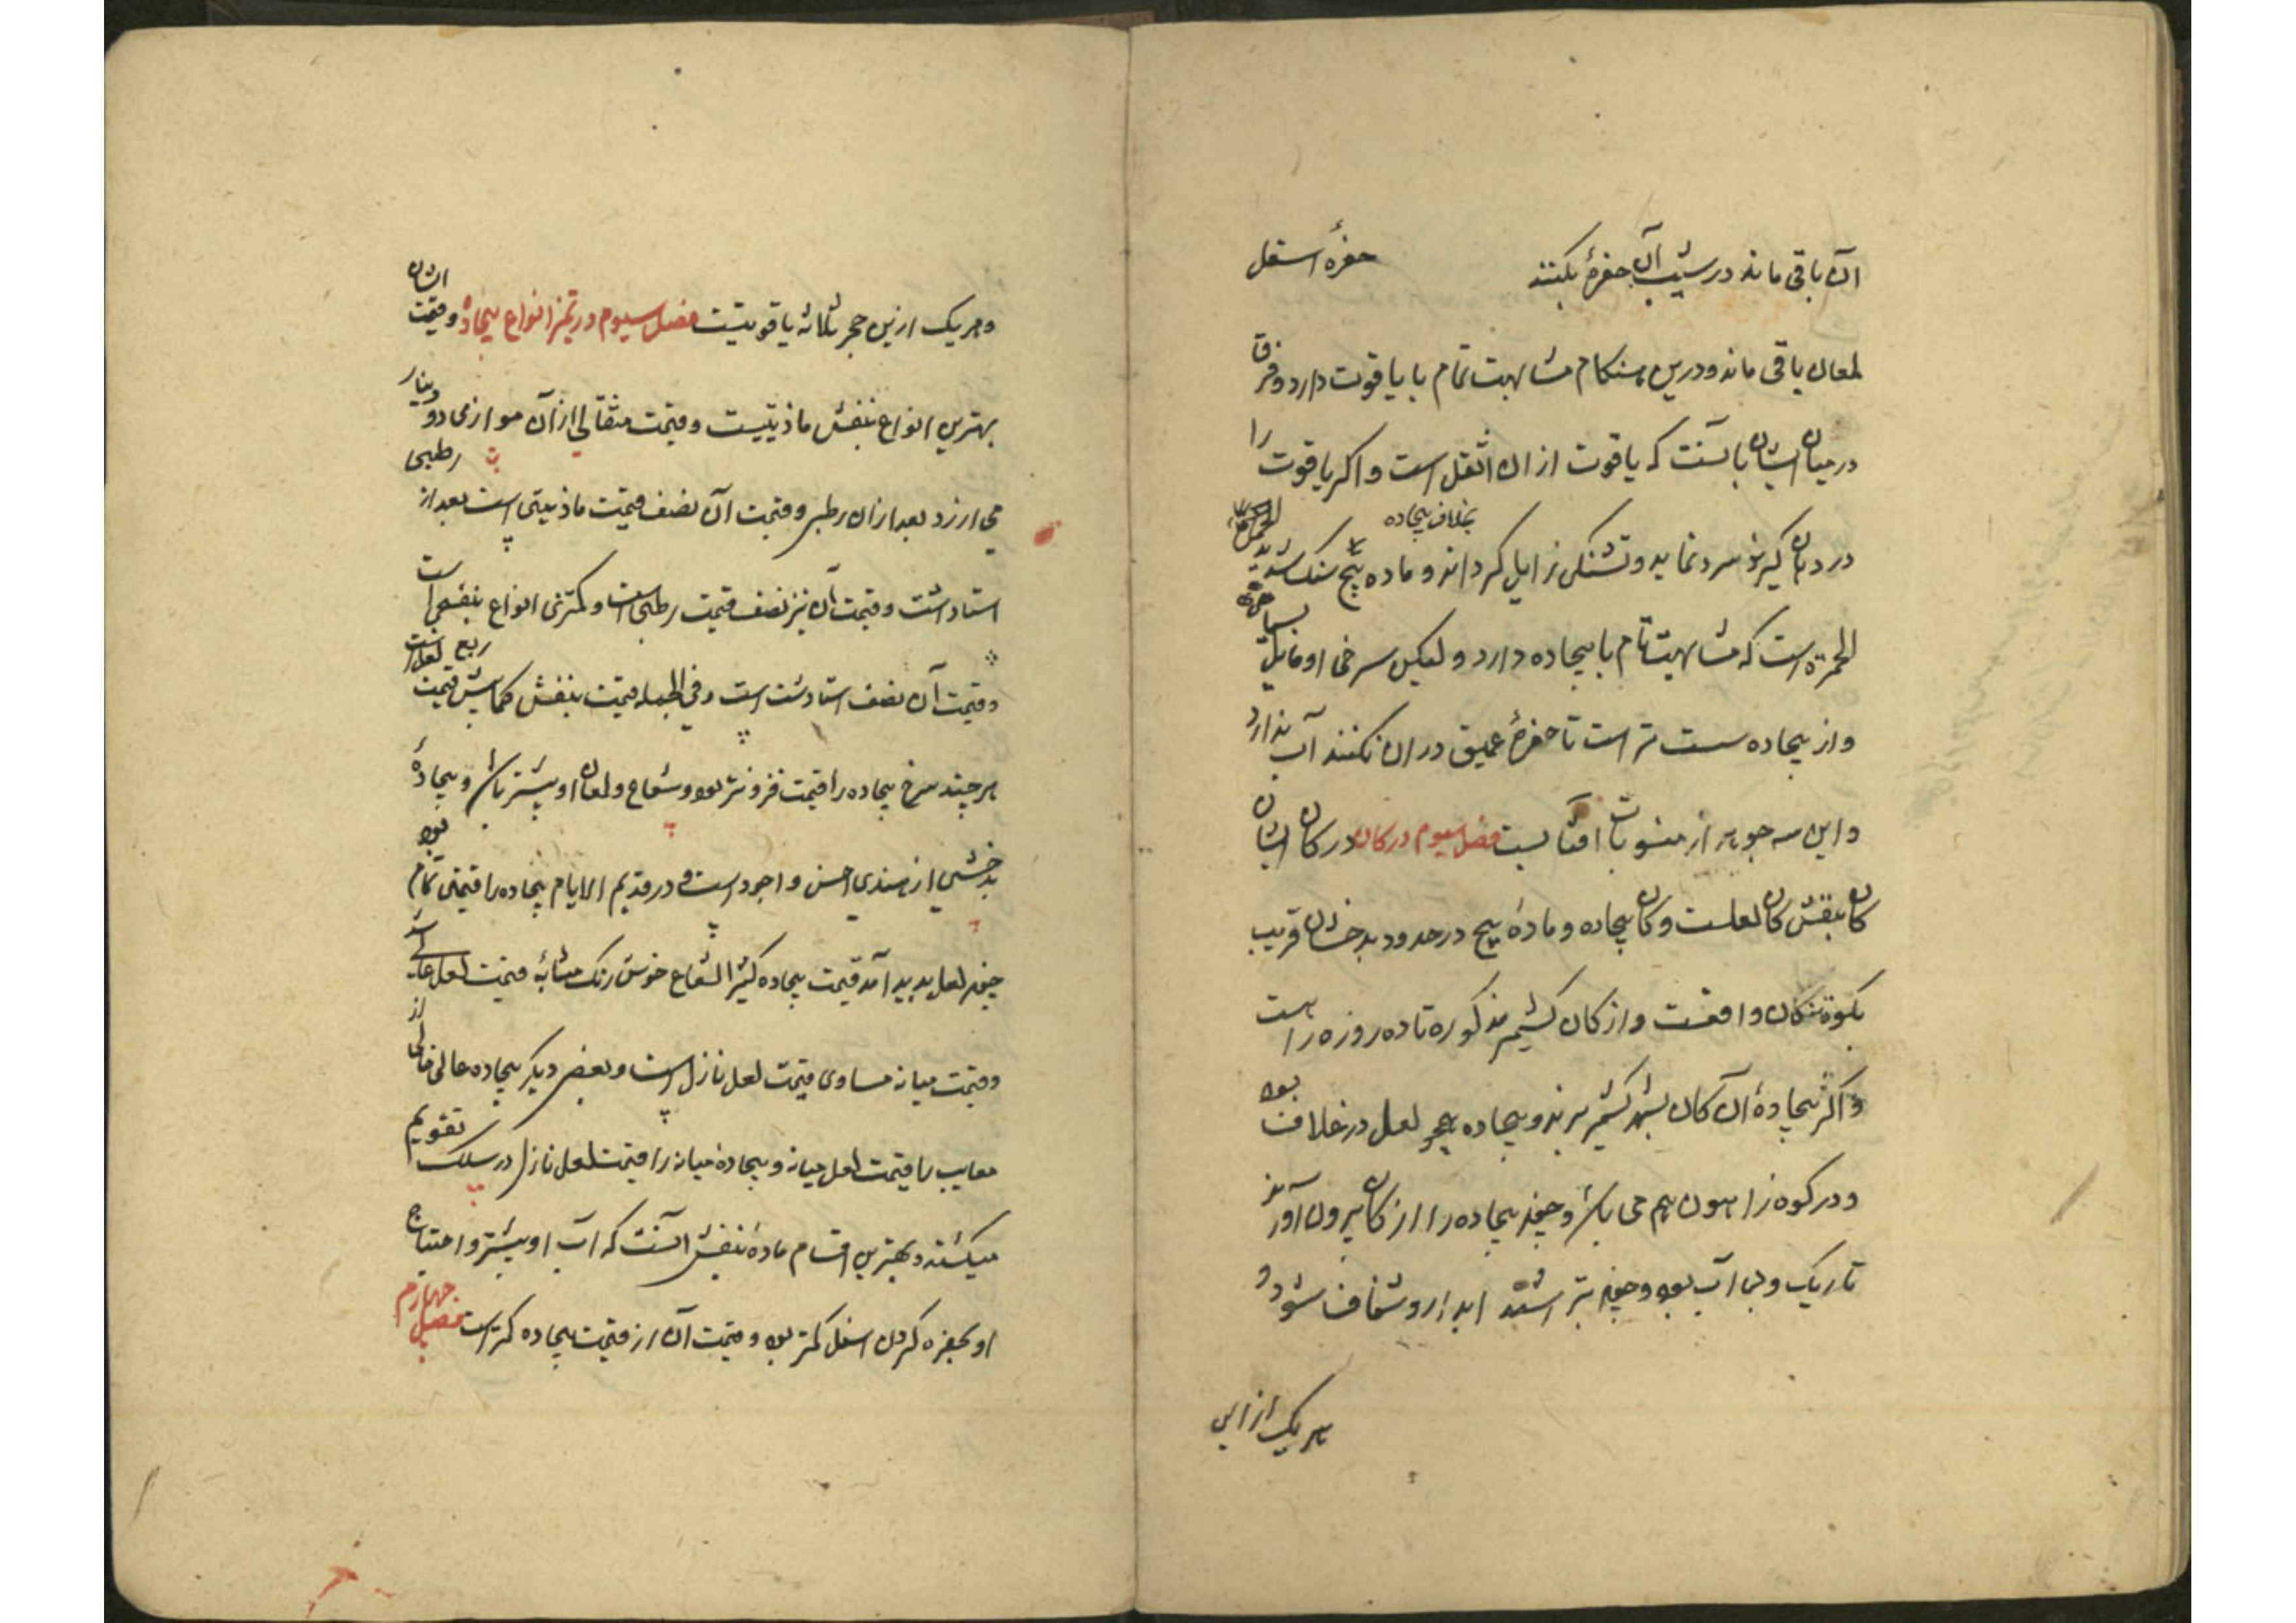 آن باقی ماند در شیب آن حفرهٔ بکنند حفرهٔ اسفل
لمعان باقی ماند و درین هنکام مشابهت تمام با یاقوت دارد و فرق
در میان ایشان بآنست که یاقوت از ان اثقل است و اکر یاقوت را
در دهان کیرند سرد نماید و تشنکی زایل کرداند بخلاف بیجاده و ماده بنج سنک شدید
الحمرة است که مشابهت تام با بیجاده دارد و لیکن سرخی او مایل بسیاهی
و از بیجاده سست تر است تا حفرهٔ عمیق در ان نکنند آب ندارد
و این سه جوهر از منسوبات افتابست فصل سیوم در کان در کان ایشان
کان بنفش کان لعلست و کان بیجاده و مادهٔ بیج در حدود بدخشان قریب
بکوه تنکان واقعست و از کان کشیم مذکوره تا ده روزه راهست
و اکثر بیجادهٔ آن کان بشهر کشیم برند و بیجاده همچو لعل در غلاف بود
و در کوه زاهون هم می باشد و چون بیجاده را از کان بیرون آورند
تاریک و بی آب بود و چون تراشند ابدار و شفاف شود و
هر یک از این
و هر یک ازین حجر ثلاثه یاقوتیست فصل سیوم در تمیز انواع بیجاده و قیمت ایشان
بهترین انواع بنفش ماذینیست و قیمت مثقالی از آن موازی دو دینار
می ارزد بعد از ان رطبی و قیمت آن نصف قیمت ماذینی است بعد از رطبی
استادشت و قیمت آن نیز نصف قیمت رطبی است و کمترین انواع بنفش است
و قیمت آن نصف استادشت است و فی الجمله قیمت بنفش کمابیش قیمت ربع لعل است
هر چند سرخ بیجاده را قیمت فزونتر بود و شعاع و لمعان او بیشتر باشد و بیجادهٔ
بدخشی از هندی احسن و اجود است و در قدیم الایام بیجاده را قیمتی تمام بود
چون لعل پدید آمد قیمت بیجاده کثیر الشعاع خوش رنک مشابه قیمت لعل عالی
و قیمت میانه مساوی قیمت لعل نازل است و بعضی دیکر بیجاده عالی خالی از
معایب را قیمت لعل میانه و بیجاده میانه را قیمت لعل نازل در سلک تقویم
میکشند و بهترین اقسام مادهٔ بنفش آنست که آب او بیشتر و احتیاج
او بحفره کردن اسفل کمتر بود و قیمت آن از قیمت بیجاده کمتر است فصل چهارم